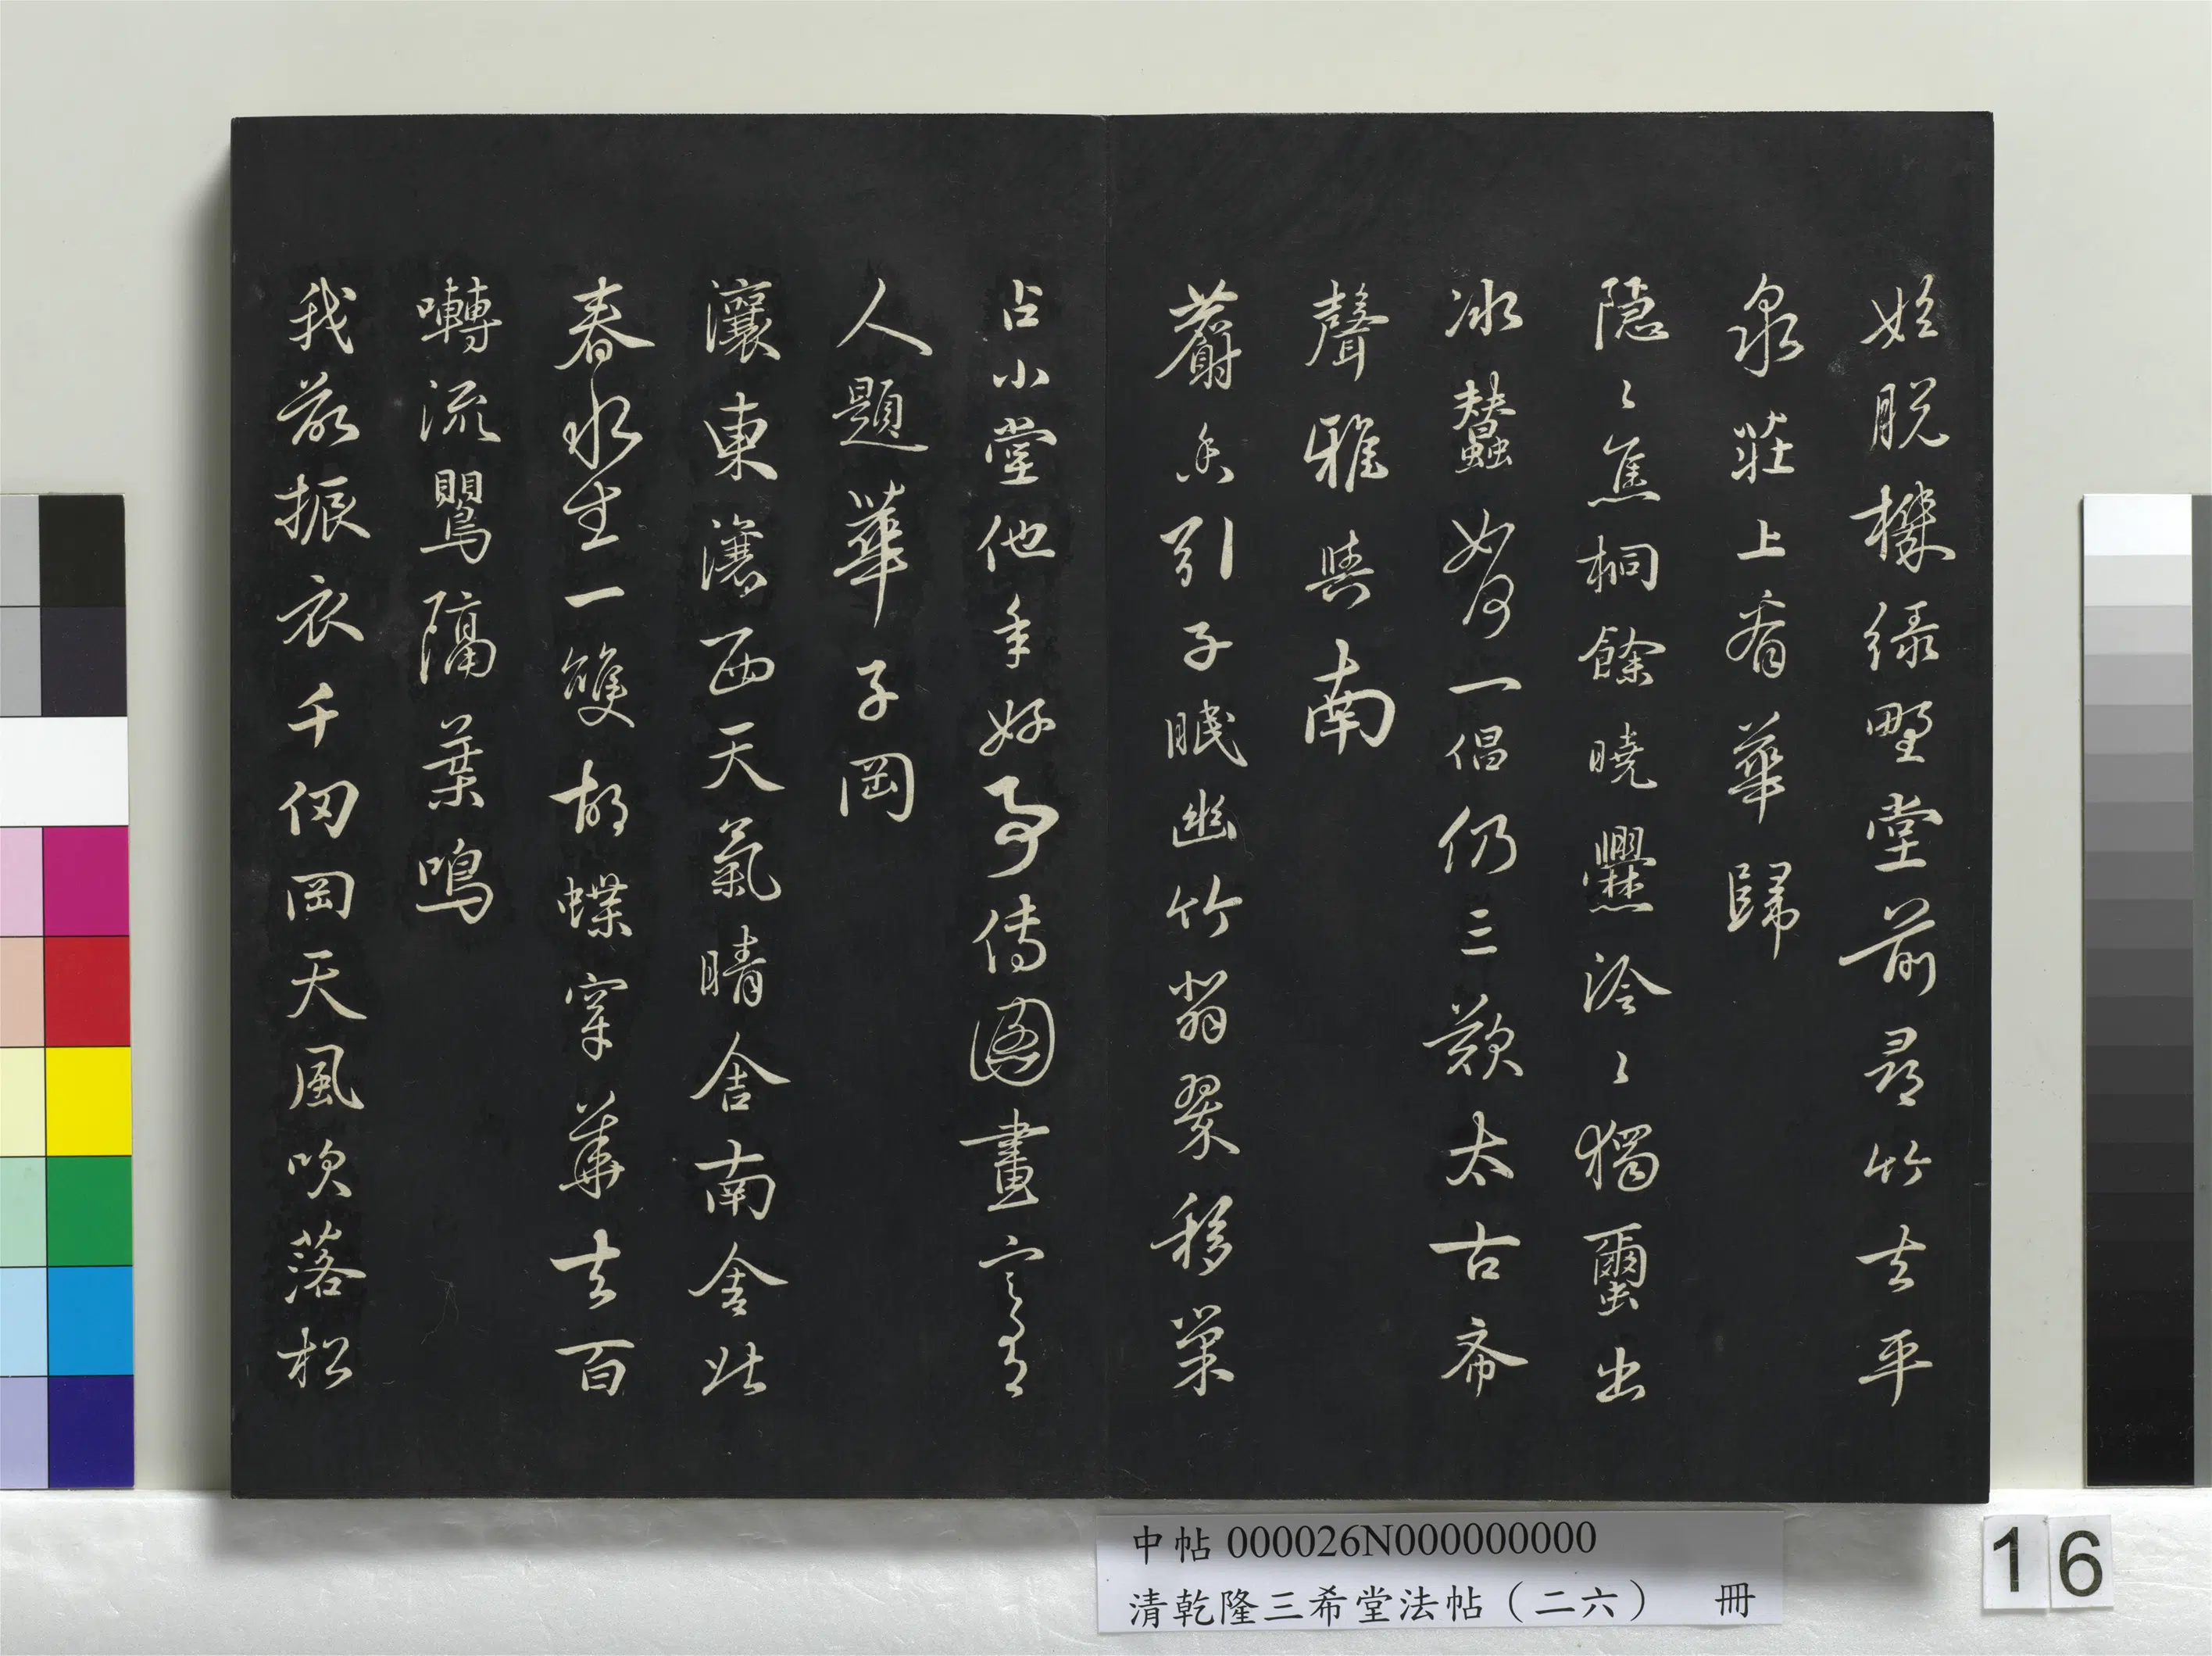 姓脫機緣野堂前尋竹去平
泉莊上看華歸
隱〻焦桐餘曉爨泠〻獨蠒出
冰蠶如何一倡仍三歎太古齋
聲雅與南
麝香引子眠幽竹翡翠移巢
占小堂他年好事傳圖畫宜有
人題華子岡
瀼東瀼西天氣晴舍南舍北
春水生一雙胡蝶穿華去百
囀流鸎隔葉鳴
我欲振衣千仞岡天風吹落松
中帖 000026N000000000
清乾隆三希堂法帖（二六） 冊
16